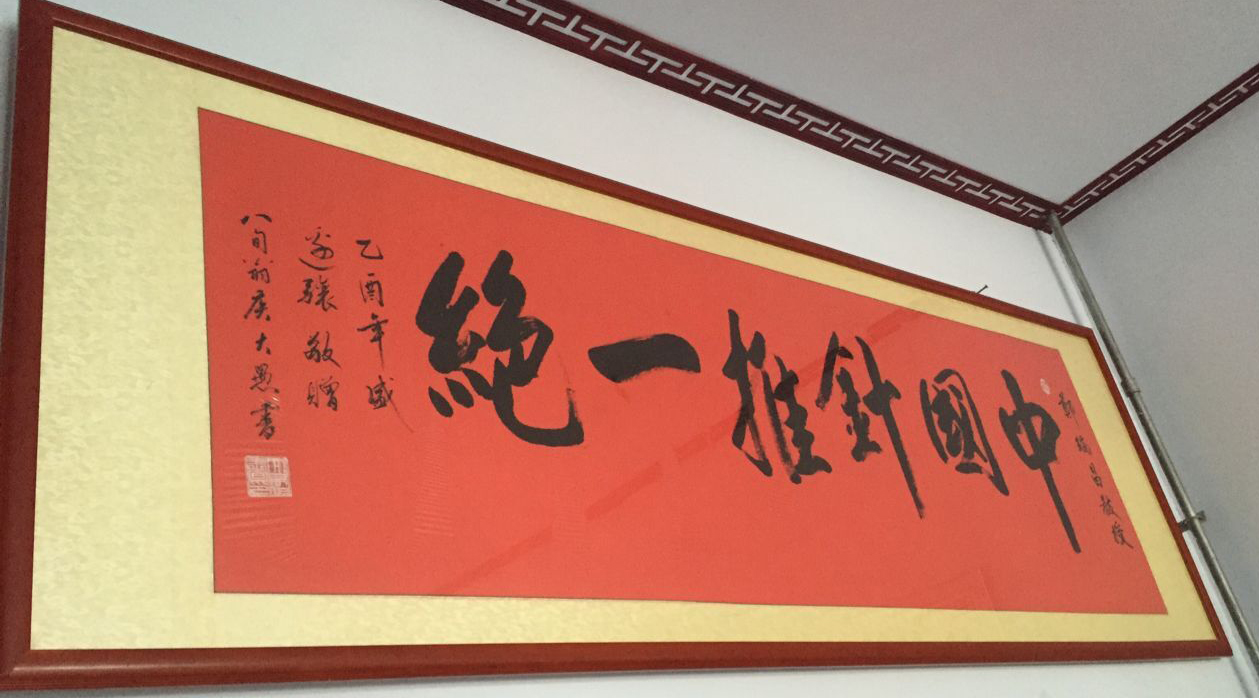 鄭瑞昌教授
中國針推一絕
乙酉年盛
敬贈
八旬翁庚大愚書